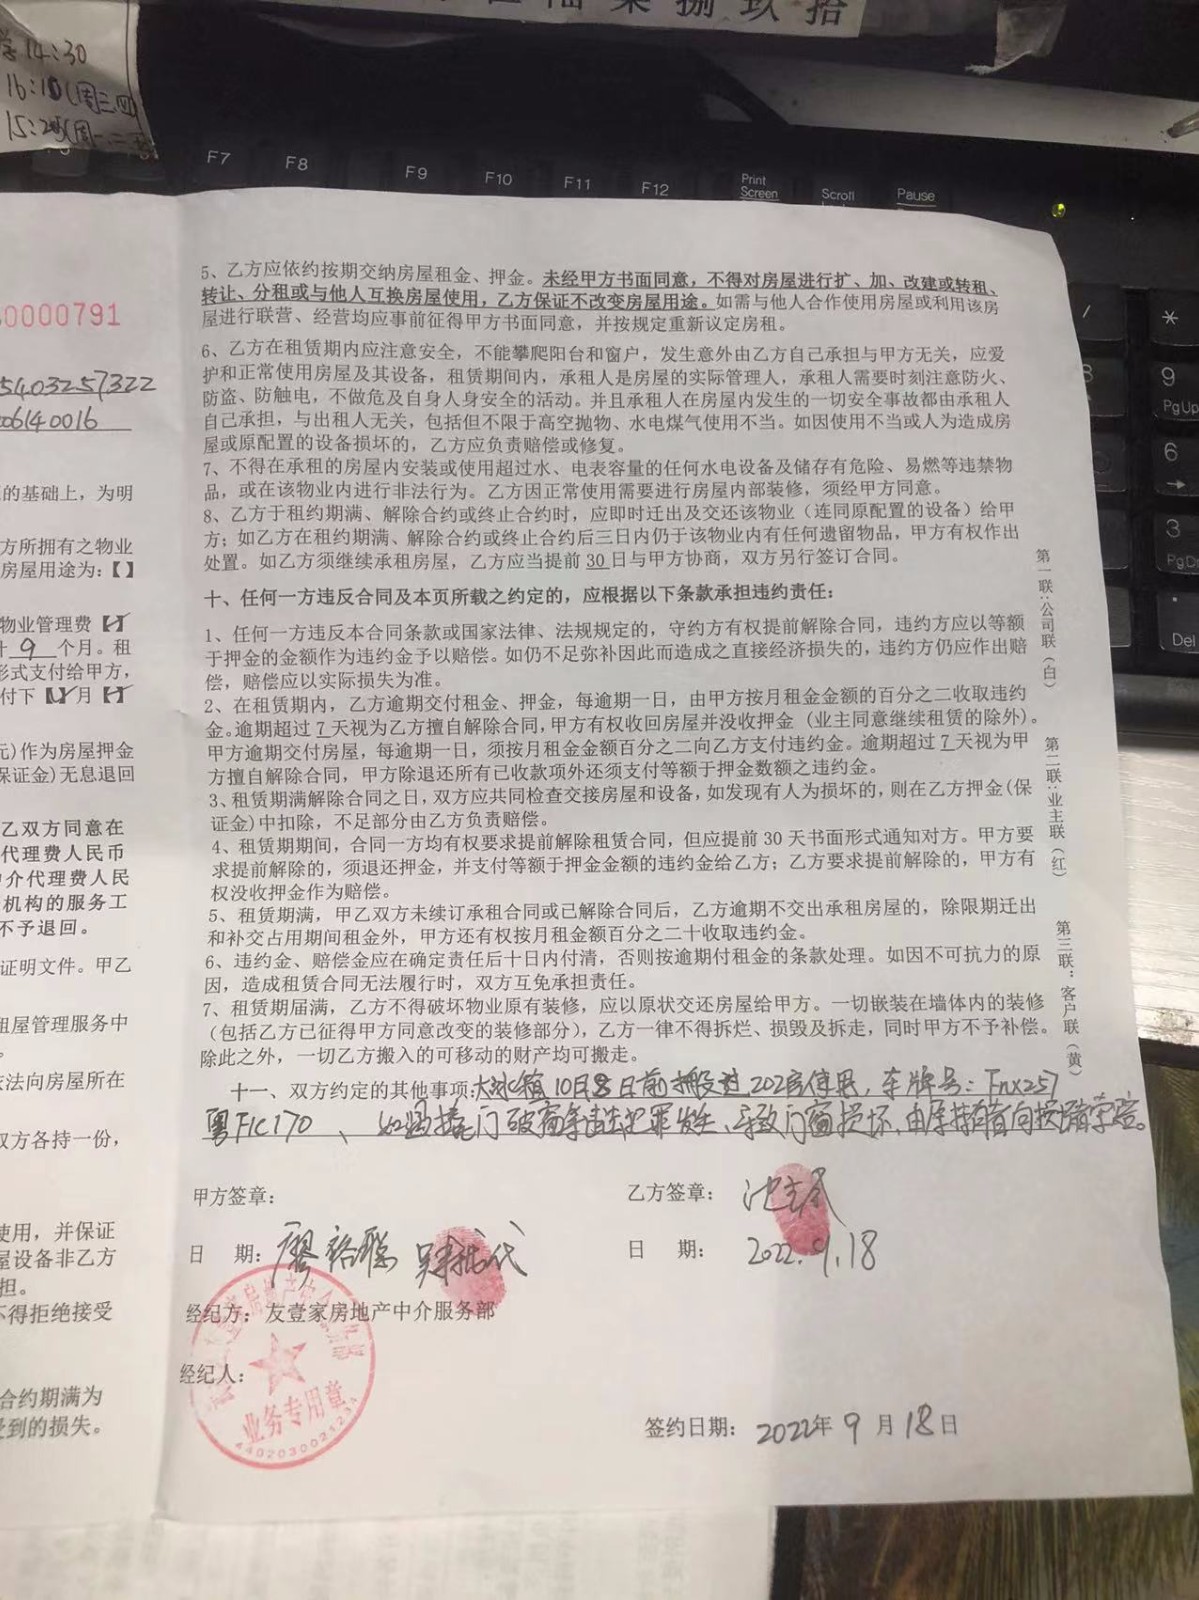 伍陆柒捌玖拾
14:30
16:10(周三四)
F7
F8
F9
F10
F11
F12
Print
Screen
Scroll
Pause
9
PgUp
6
3
Del
0000791
5403257322
06140016
的基础上，为明
方所拥有之物业
房屋用途为：【】
物业管理费
9 个月。租
形式支付给甲方，
付下
月
元)作为房屋押金
保证金)无息退回
乙双方同意在
代理费人民币
中介代理费人民
机构的服务工
不予退回。
证明文件。甲乙
租屋管理服务中
依法向房屋所在
双方各持一份，
使用，并保证
屋设备非乙方
担。
不得拒绝接受
合约期满为
受到的损失。
5、乙方应依约按期交纳房屋租金、押金。未经甲方书面同意，不得对房屋进行扩、加、改建或转租、
转让、分租或与他人互换房屋使用，乙方保证不改变房屋用途。如需与他人合作使用房屋或利用该房
屋进行联营、经营均应事前征得甲方书面同意，并按规定重新议定房租。
6、乙方在租赁期内应注意安全，不能攀爬阳台和窗户，发生意外由乙方自己承担与甲方无关，应爱
护和正常使用房屋及其设备，租赁期间内，承租人是房屋的实际管理人，承租人需要时刻注意防火、
防盗、防触电，不做危及自身人身安全的活动。并且承租人在房屋内发生的一切安全事故都由承租人
自己承担，与出租人无关，包括但不限于高空抛物、水电煤气使用不当。如因使用不当或人为造成房
屋或原配置的设备损坏的，乙方应负责赔偿或修复。
7、不得在承租的房屋内安装或使用超过水、电表容量的任何水电设备及储存有危险、易燃等违禁物
品，或在该物业内进行非法行为。乙方因正常使用需要进行房屋内部装修，须经甲方同意。
8、乙方于租约期满、解除合约或终止合约时，应即时迁出及交还该物业（连同原配置的设备）给甲
方；如乙方在租约期满、解除合约或终止合约后三日内仍于该物业内有任何遗留物品，甲方有权作出
处置。如乙方须继续承租房屋，乙方应当提前 30 日与甲方协商，双方另行签订合同。
十、任何一方违反合同及本页所载之约定的，应根据以下条款承担违约责任：
1、任何一方违反本合同条款或国家法律、法规规定的，守约方有权提前解除合同，违约方应以等额
于押金的金额作为违约金予以赔偿。如仍不足弥补因此而造成之直接经济损失的，违约方仍应作出赔
偿，赔偿应以实际损失为准。
2、在租赁期内，乙方逾期交付租金、押金，每逾期一日，由甲方按月租金金额的百分之二收取违约
金。逾期超过 7 天视为乙方擅自解除合同，甲方有权收回房屋并没收押金（业主同意继续租赁的除外）。
甲方逾期交付房屋，每逾期一日，须按月租金金额百分之二向乙方支付违约金。逾期超过 7 天视为甲
方擅自解除合同，甲方除退还所有已收款项外还须支付等额于押金数额之违约金。
3、租赁期满解除合同之日，双方应共同检查交接房屋和设备，如发现有人为损坏的，则在乙方押金(保
证金)中扣除，不足部分由乙方负责赔偿。
4、租赁期期间，合同一方均有权要求提前解除租赁合同，但应提前 30 天书面形式通知对方。甲方要
求提前解除的，须退还押金，并支付等额于押金金额的违约金给乙方；乙方要求提前解除的，甲方有
权没收押金作为赔偿。
5、租赁期满，甲乙双方未续订承租合同或已解除合同后，乙方逾期不交出承租房屋的，除限期迁出
和补交占用期间租金外，甲方还有权按月租金额百分之二十收取违约金。
6、违约金、赔偿金应在确定责任后十日内付清，否则按逾期付租金的条款处理。如因不可抗力的原
因，造成租赁合同无法履行时，双方互免承担责任。
7、租赁期届满，乙方不得破坏物业原有装修，应以原状交还房屋给甲方。一切嵌装在墙体内的装修
（包括乙方已征得甲方同意改变的装修部分），乙方一律不得拆烂、损毁及拆走，同时甲方不予补偿。
除此之外，一切乙方搬入的可移动的财产均可搬走。
十一、双方约定的其他事项：大冰箱10月8日前搬进202房使用，车牌号：FNX257
粤F1C170、如遇撬门破窗等犯罪发生，导致门窗损坏，由
甲方签章：
乙方签章：
日 期：廖 代
日 期：2022.9.18
经纪方：友壹家房地产中介服务部
经纪人：
业务专用章
签约日期：2022年9月18日
第一联：公司联（白）
第二联：业主联（红）
第三联：客户联（黄）